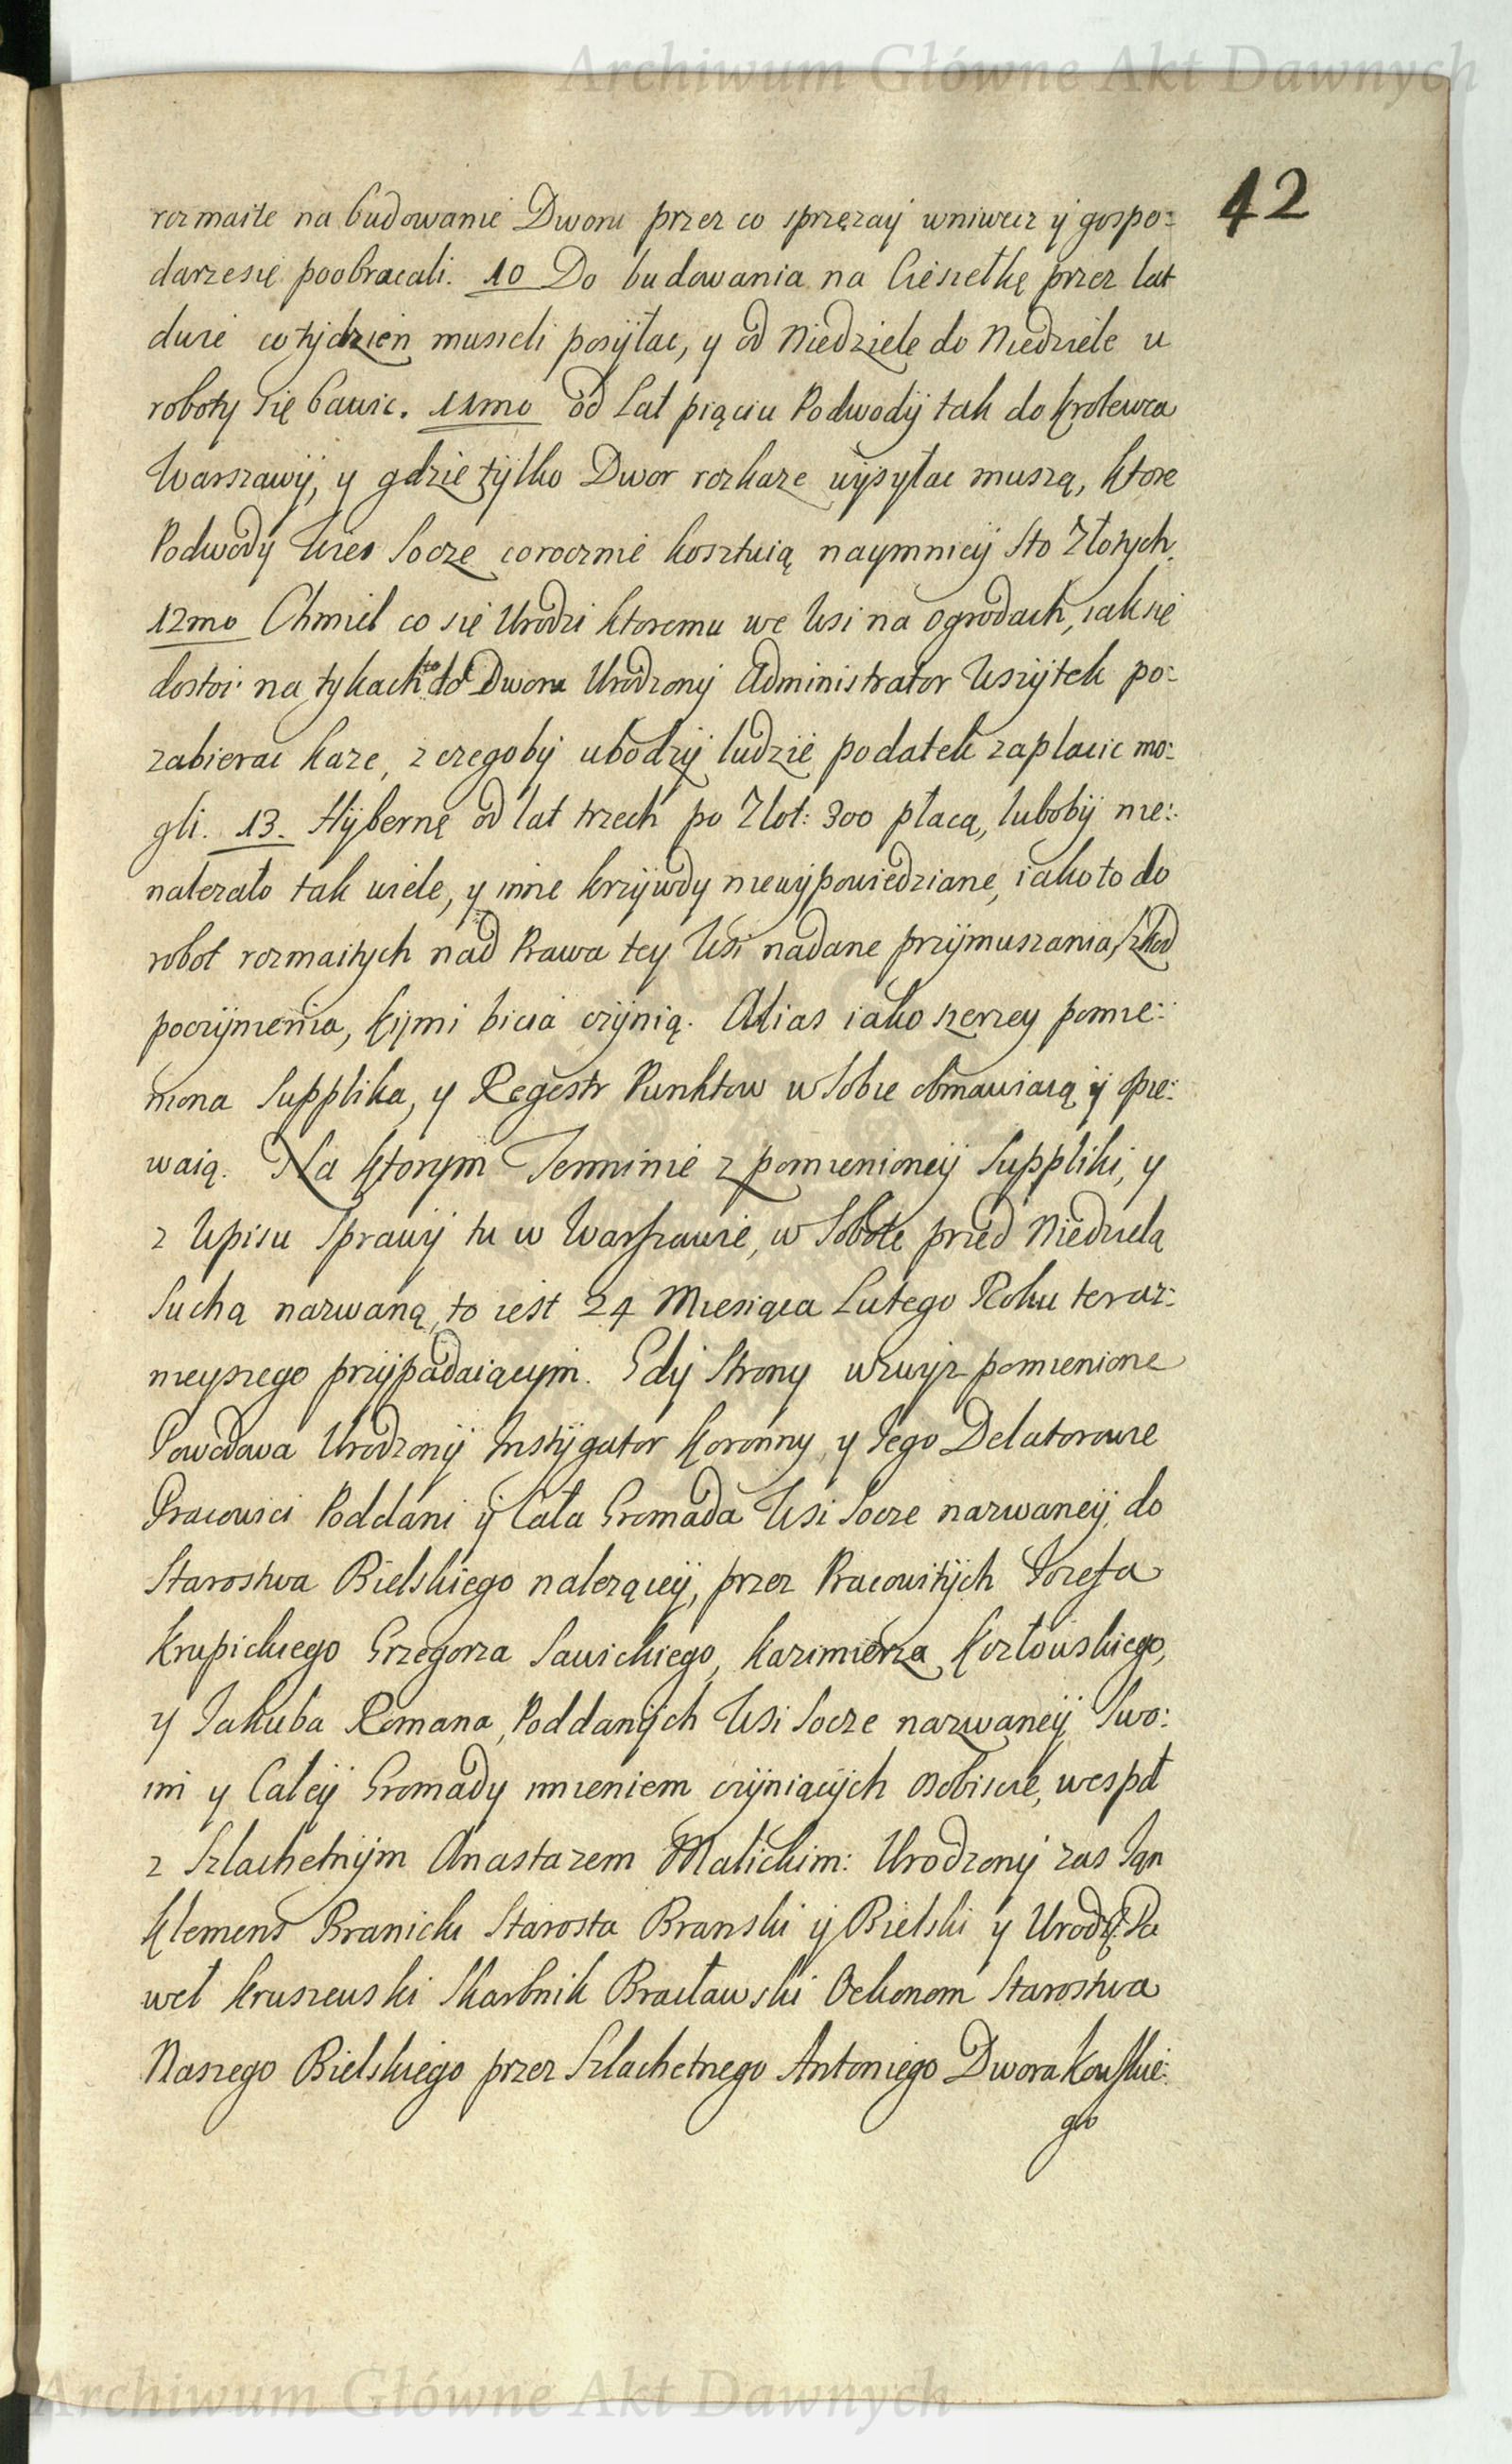 Archiwum Główne Akt Dawnych
42
rozmaite na budowanie Dworu przez co sprzęzaÿ wniwecz ÿ gospo:
darzesię poobracali. 10 Do budowania na Cieszełkę przez lat
dwie cotÿdzien musieli posÿłac, y od Niedziele do Niedziele u
roboty się bawic. 11mo od Lat piąciu Podwodÿ tak do Krolewca
Warszawÿ, y gdzie tÿlko Dwor rozkaze wÿsyłac muszą, ktore
Podwodÿ Wies Socze corocznie kosztuią naymnieÿ Sto Złotych.
12mo Chmiel co się Urodzi ktoremu we Wsi na ogrodach, iak się
dostoi na tykach to do Dworu Urodzonÿ Administrator Wszÿtek po:
zabierac kaze, z czegobÿ ubodzÿ ludzie podatek zaplacic mo:
gli. 13. Hÿbernę od lat trzech po Zlot: 300 płacą, lubobÿ nie:
nalezało tak wiele, y inne krzÿwdy niewÿpowiedziane, iakoto do
robot rozmaitych nad Prawa tey Wsi nadane przÿmuszania, Szkod
poczÿnienia, kÿmi bicia czÿnią. Alias iako szerzey pomie:
niona Supplika, y Regestr Punktow w Sobie obmawiaią ÿ opie:
waią. Na ktorÿm Terminie z pomienioneÿ Suppliki, y
z Wpisu Sprawÿ tu w Warszawie, w Sobotę przed Niedzielą
Suchą nazwaną, to iest 24 Miesiąca Lutego Roku teraz:
nieyszego przÿpadaiącÿm. Gdÿ Strony wzwÿz pomienione
Powodowa Urodzonÿ Instÿgator Koronny y Iego Delatorowie
Pracowici Poddani ÿ Cała Gromada Wsi Socze nazwaneÿ, do
Starostwa Bielskiego naleząceÿ, przez Pracowitÿch Iozefa
Krupickiego Grzegorza Sawickiego, Kazimierza Kozłowskiego,
y Iakuba Romana, Poddanÿch Wsi Socze nazwaneÿ Swo:
im y Całeÿ Gromady imieniem czÿniącÿch osobiscie, wespoł
z Szlachetnÿm Anastazem Malickim: Urodzonÿ zas Ian
Klemens Branicki Starosta Branski ÿ Bielski y Urodz: Pa
weł Kruszewski Skarbnik Bracławski Oekonom Starostwa
Naszego Bielskiego przez Szlachetnego Antoniego Dworakowskie:
go
Archiwum Główne Akt Dawnych